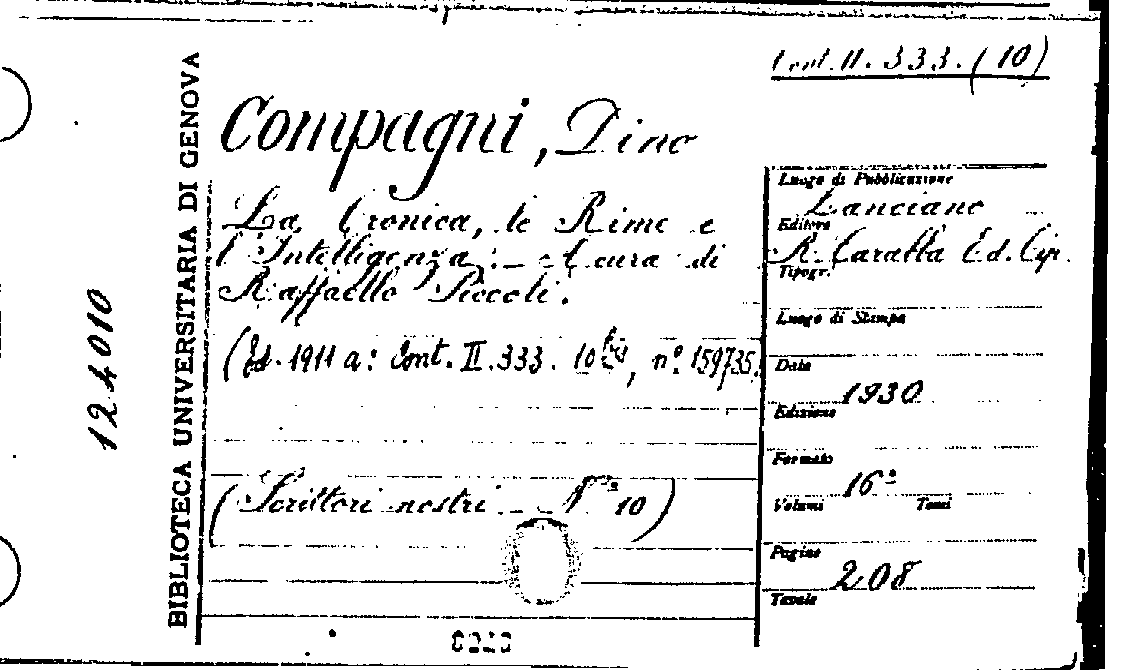 Cont. II. 333. (10)
BIBLIOTECA UNIVERSITARIA DI GENOVA
124010
Compagni, Dino
La Cronica, le Rime e
l'Intelligenza :- A cura di
Raffaello Piccoli.
(Ed. 1911 a: Cont. II. 333. 10 bis, n.º 159735.
(Scrittori nostri - Nº 10)
Luogo di Pubblicazione
Lanciano
Editore
R. Carabba Ed. Tip.
Tipogr.
Luogo di Stampa
Data
1930
Edizione
Formato
16º
Volumi Tomi
Pagine
208
Tavole